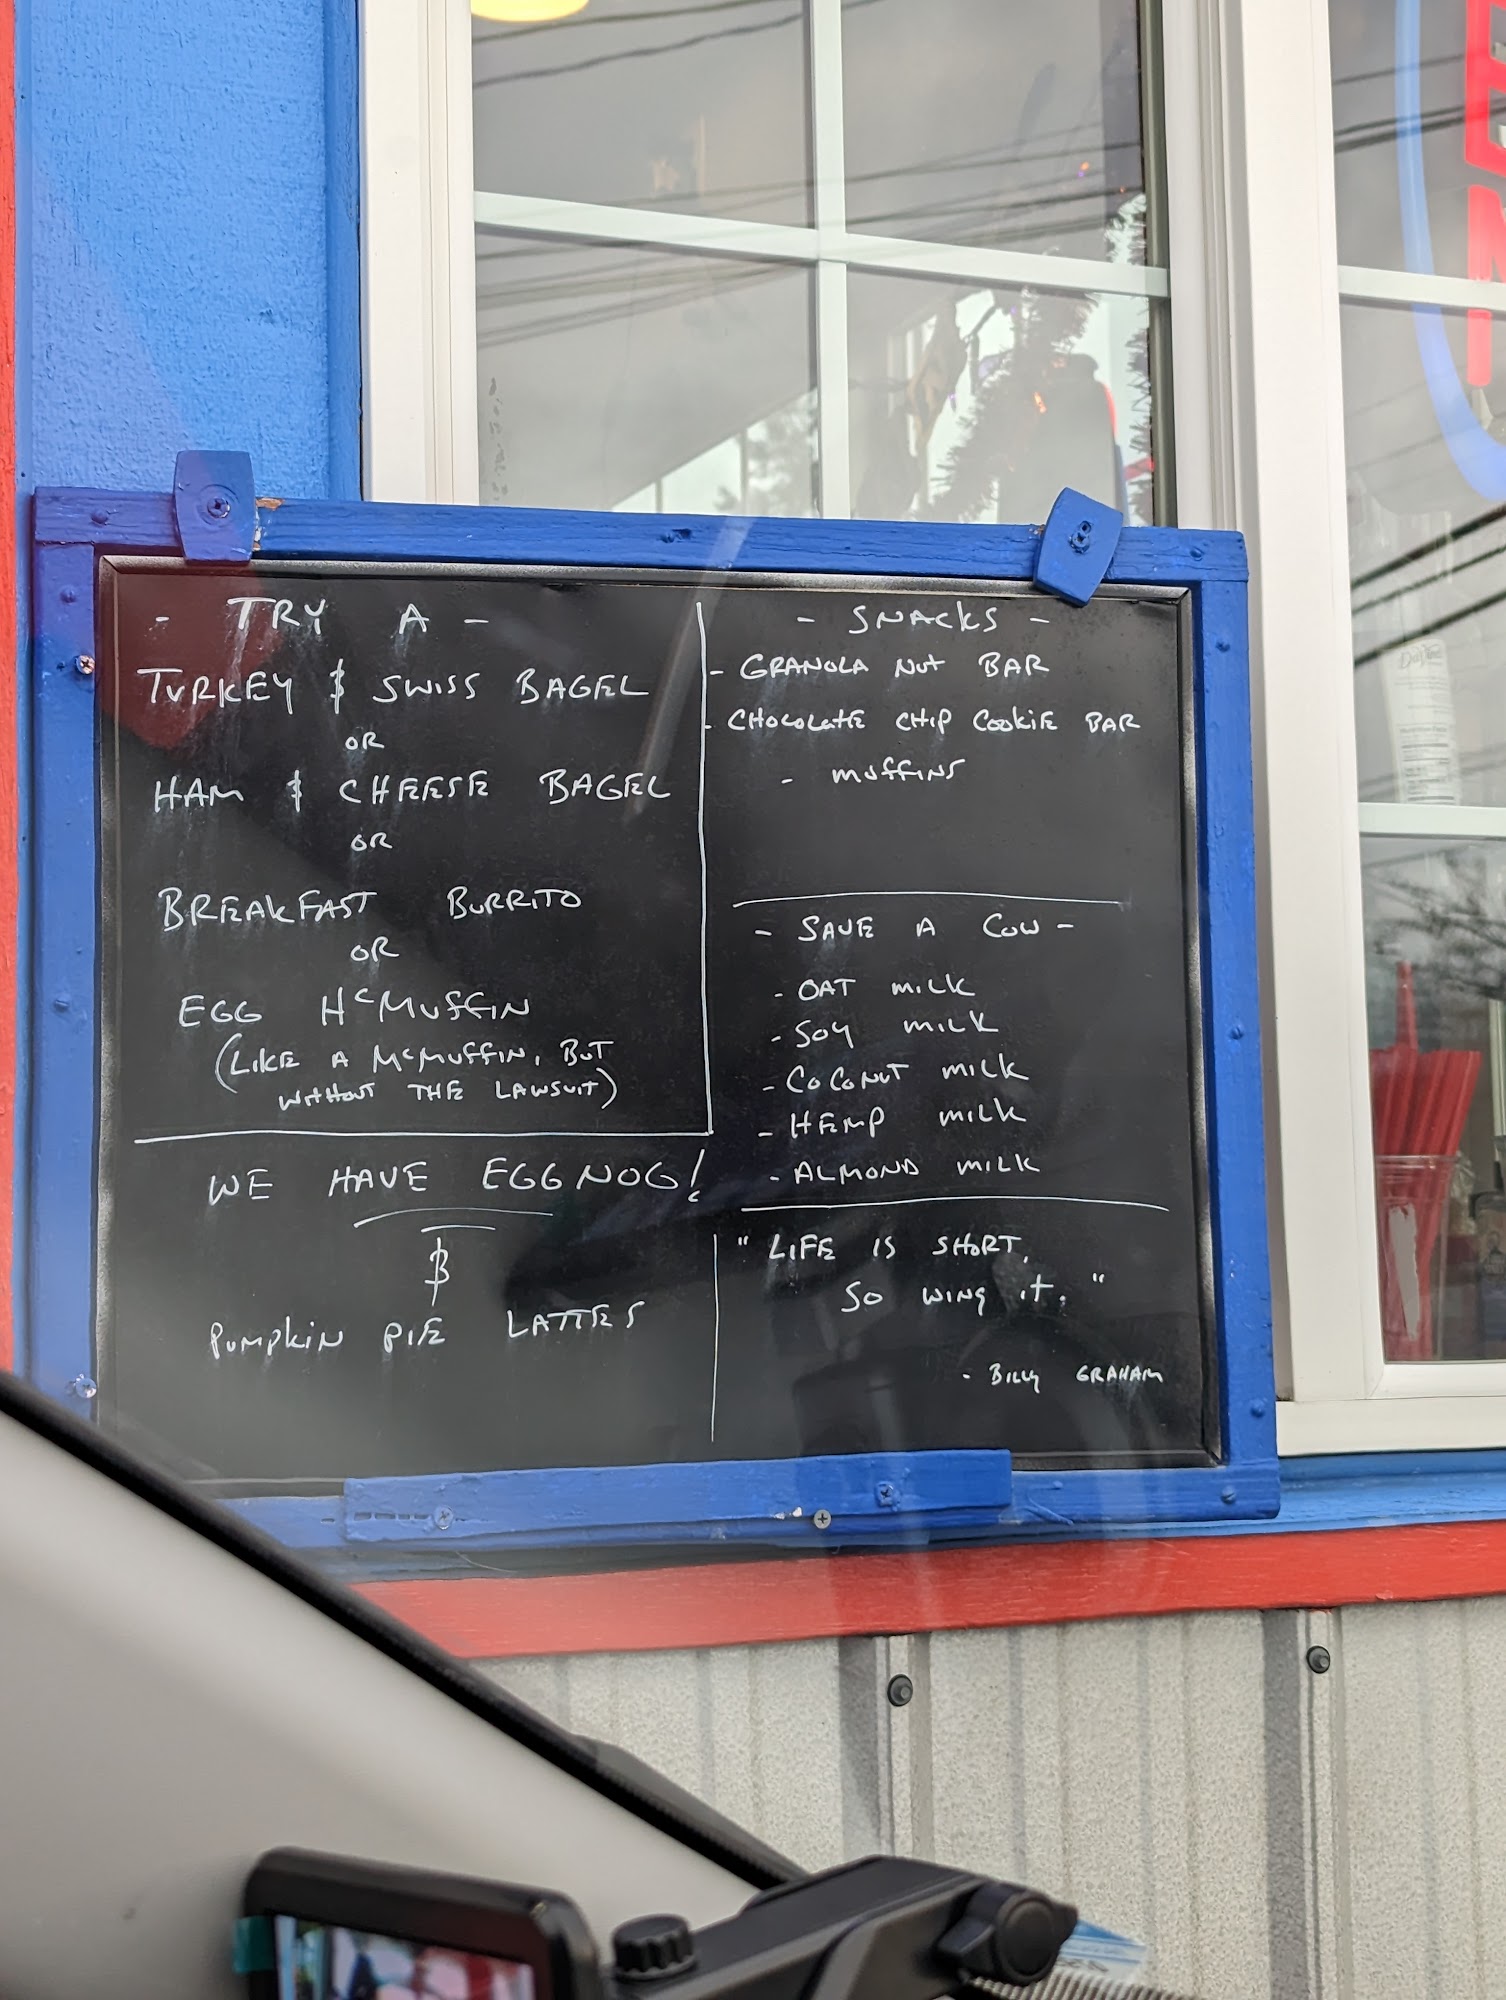 - TRY A -
TURKEY & SWISS BAGEL
OR
HAM & CHEESE BAGEL
OR
BREAKFAST BURRITO
OR
EGG HcMUFFIN
(LIKE A McMUFFIN, BUT
WITHOUT THE LAWSUIT)
WE HAVE EGGNOG!
&
PUMPKIN PIE LATTES
- SNACKS -
- GRANOLA NUT BAR
- CHOCOLATE CHIP COOKIE BAR
- MUFFINS
- SAVE A COW -
- OAT MILK
- SOY MILK
- COCONUT MILK
- HEMP MILK
- ALMOND MILK
"LIFE IS SHORT,
SO WING IT."
- BILLY GRAHAM